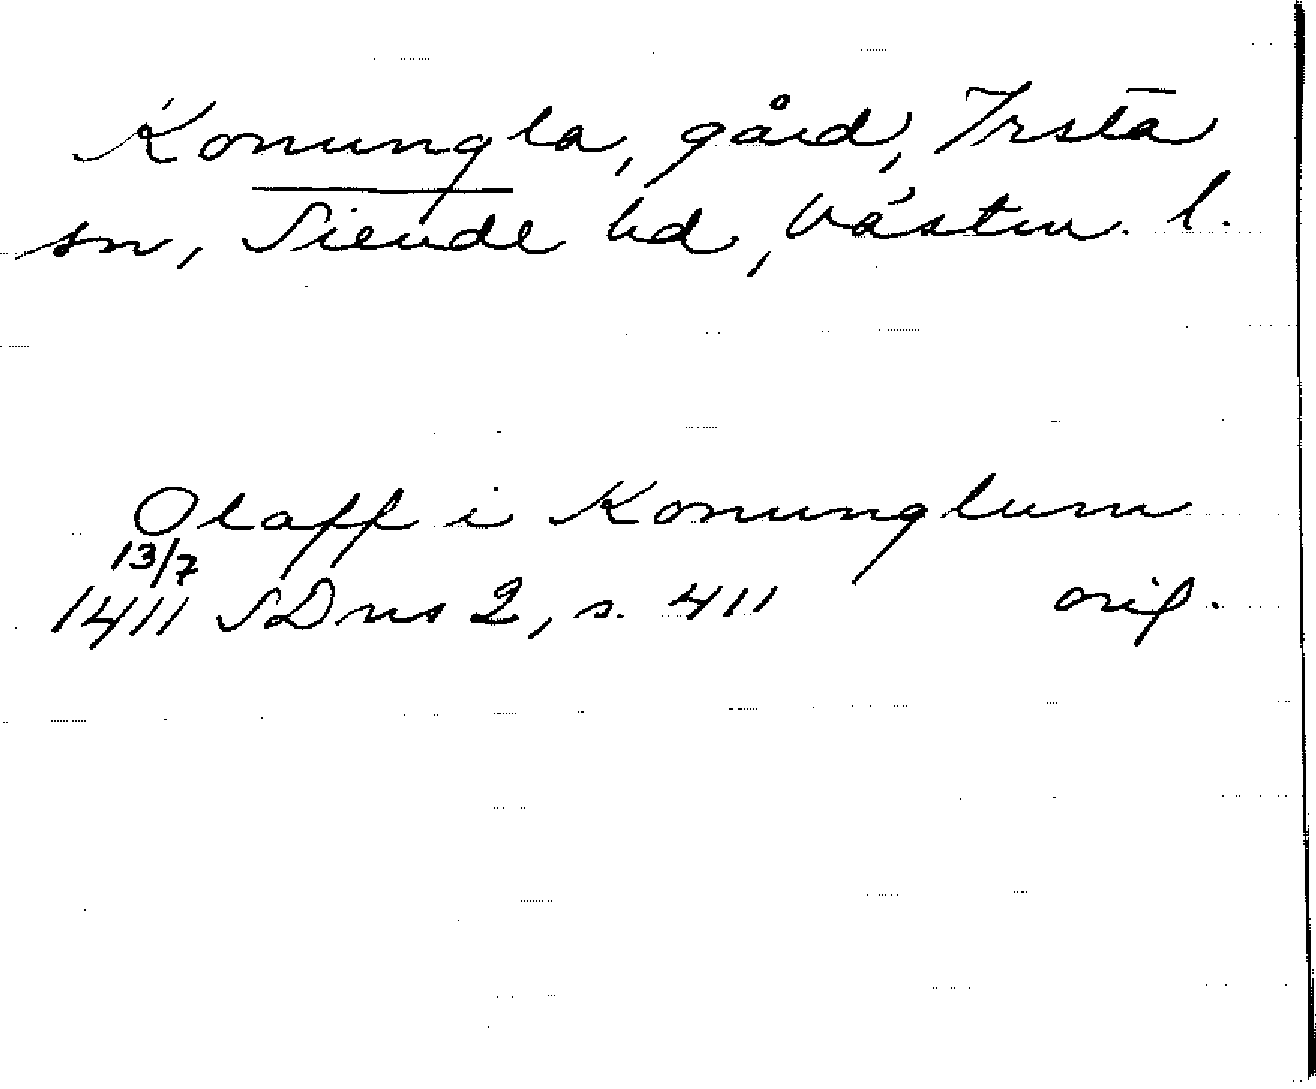 Konungla, gård, Irsta
sn, Siende hd, Västm. l.
Olaff i Konunglum
13/7
1411 SDns 2, s. 411 orig.